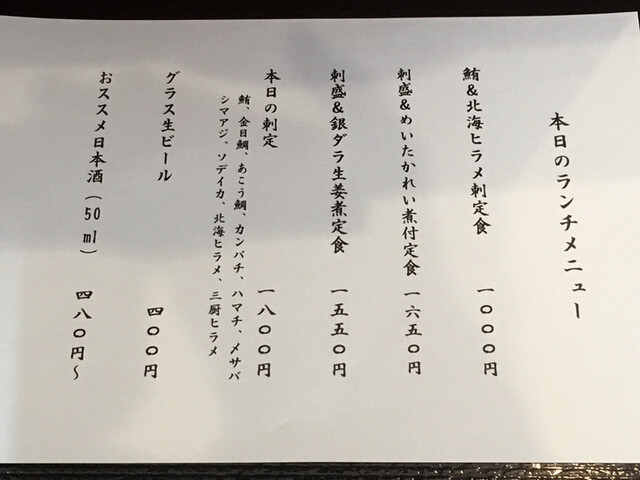 本日のランチメニュー
鮪&北海ヒラメ刺定食 一〇〇〇円
刺盛&めいたかれい煮付定食 一六五〇円
刺盛&銀ダラ生姜煮定食 一五五〇円
本日の刺定 一八〇〇円
鮪、金目鯛、あこう鯛、カンパチ、ハマチ、メサバ
シマアジ、ソデイカ、北海ヒラメ、三厨ヒラメ
グラス生ビール 四〇〇円
おススメ日本酒(50ml) 四八〇円～